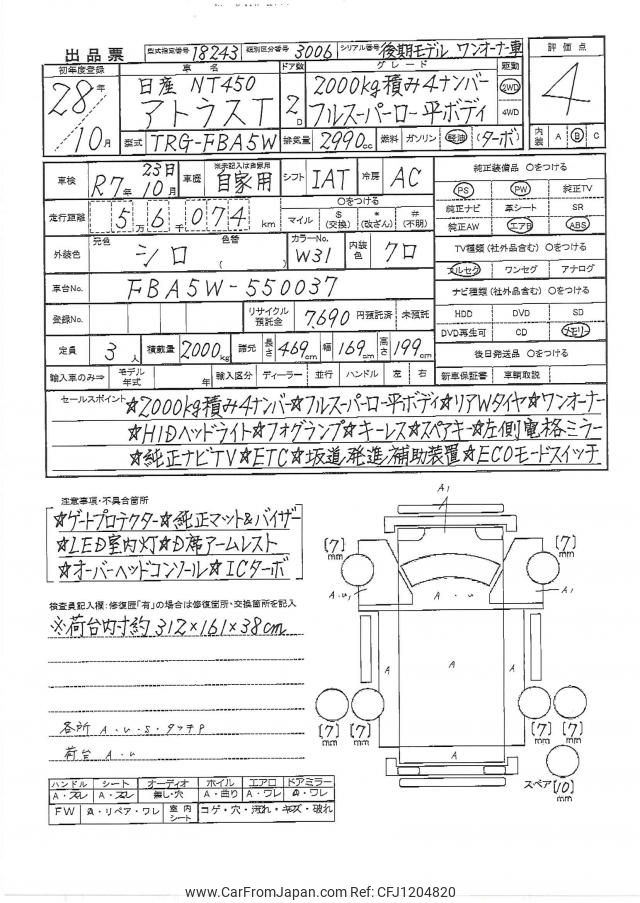 出品票 型式指定番号 18243 類別区分番号 3006 シリアル番号 後期モデル ワンオーナー車
初年度登録 車名 ドア数 グレード 駆動 評価点
28年 日産 NT450 2000kg積み4ナンバー 2WD 4
アトラスT 2D フルスーパーロー平ボディ 4WD
10月 型式 TRG-FBA5W 排気量 2990cc 燃料 ガソリン 軽油 (ターボ) 内装 A B C
車検 R7年 10月 23日 車歴 ※未記入は自家用 自家用 シフト IAT 冷房 AC
純正装備品 ○をつける
PS PW 純正TV
走行距離 5万6千074km ○をつける
マイル $(交換) *(改ざん) #(不明)
純正ナビ 革シート SR
純正AW エアB ABS
外装色 元色 シロ 色替 ( ) カラーNo. W31 内装色 クロ
TV種類(社外品含む) ○をつける
フルセグ ワンセグ アナログ
車台No. FBA5W-550037
ナビ種類(社外品含む) ○をつける
登録No. リサイクル預託金 7,690円預託済 未預託
HDD DVD SD
DVD再生可 CD メモリー
定員 3人 積載量 2000kg 諸元 長さ 469cm 幅 169cm 高さ 199cm
後日発送品 ○をつける
輸入車のみ⇒ モデル年式 年 輸入区分 ディーラー 並行 ハンドル 左 右
新車保証書 車輌取説
セールスポイント ☆2000kg積み4ナンバー☆フルスーパーロー平ボディ☆リアWタイヤ☆ワンオーナー
☆HIDヘッドライト☆フォグランプ☆キーレス☆スペアキー☆左側電格ミラー
☆純正ナビTV☆ETC☆坂道発進補助装置☆ECOモードスイッチ
注意事項・不具合箇所
☆ゲートプロテクター☆純正マット&バイザー
☆LED室内灯☆D席アームレスト
☆オーバーヘッドコンソール☆ICターボ
検査員記入欄:修復歴「有」の場合は修復箇所・交換箇所を記入
※荷台内寸約312×161×38cm
各所 A・U・S・タッチP
荷台 A・U
A1
[7]mm [7]mm
A・U1 A・U A1
A A A
[7]mm [7]mm [7]mm [7]mm
A
スペア [10]mm
ハンドル シート オーディオ ホイル エアロ ドアミラー
A・スレ A・スレ 無し・穴 A・曲り A・ワレ A・ワレ
FW A・リペア・ワレ 室内シート コゲ・穴・汚れ・キズ・破れ
www.CarFromJapan.com Ref: CFJ1204820